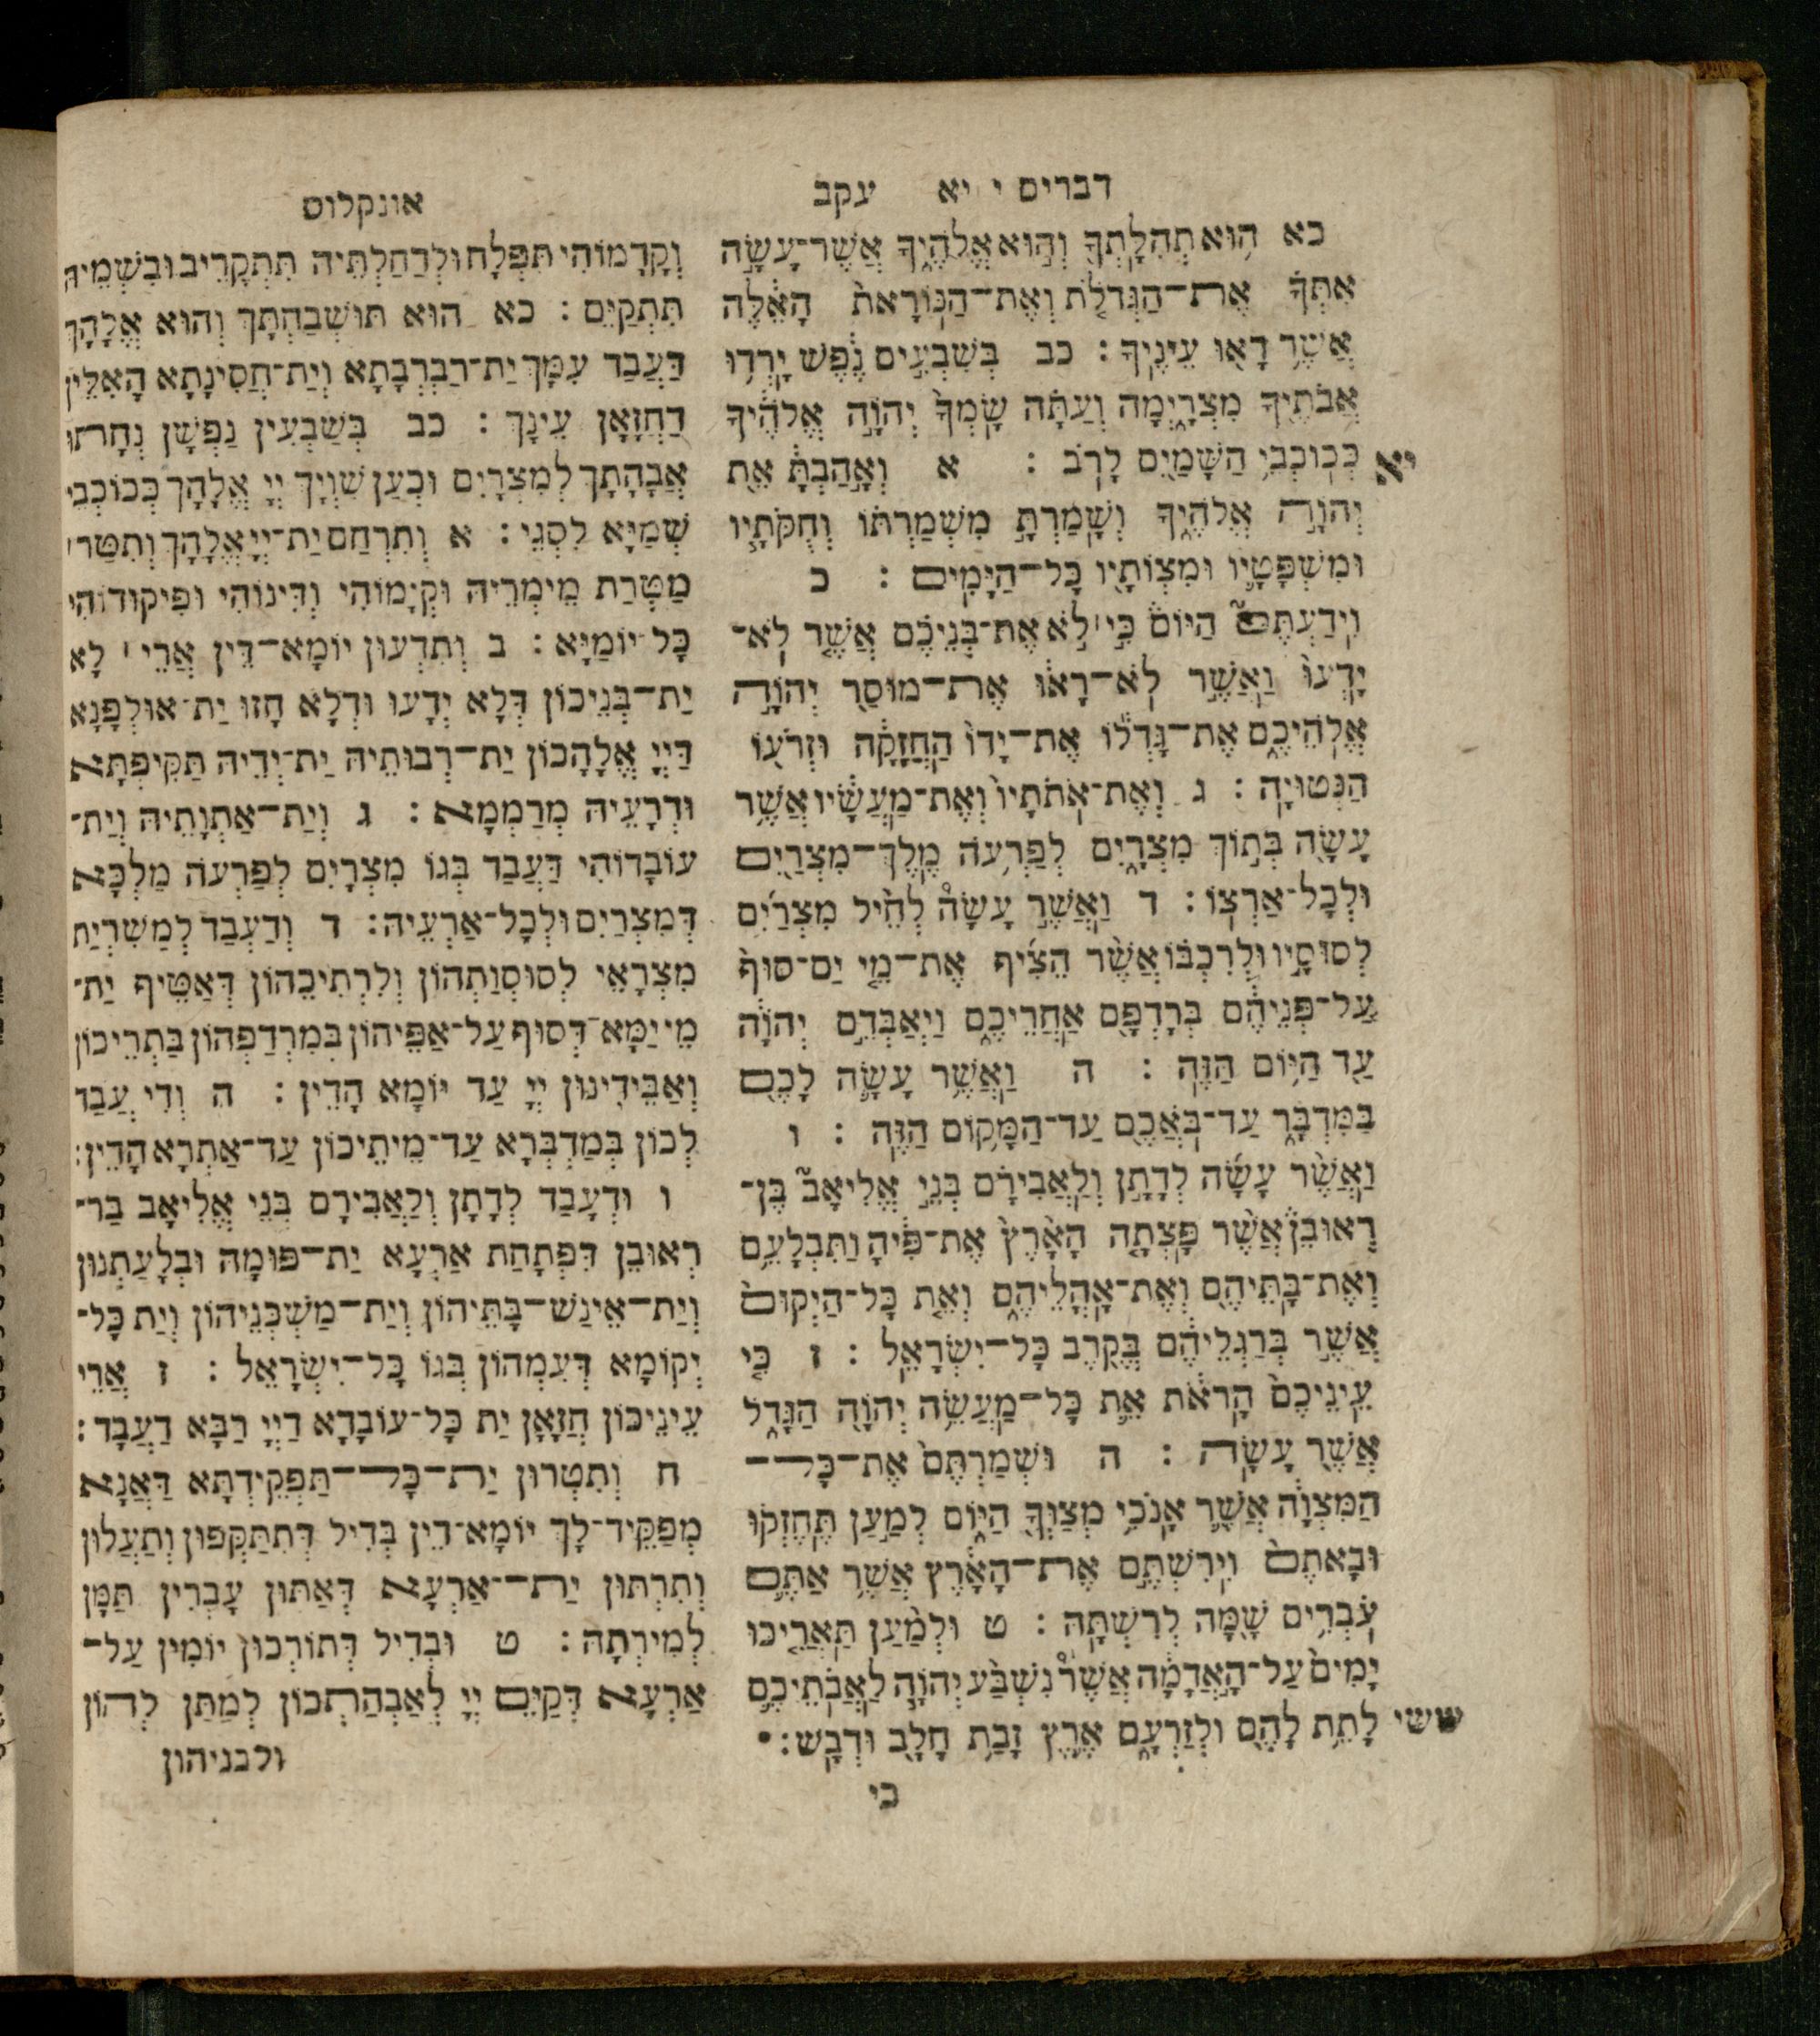 דברים י יא עקב
כא הוּא תְהִלָּתְךָ וְהוּא אֱלֹהֶיךָ אֲשֶׁר־עָשָׂה
אִתְּךָ אֶת־הַגְּדֹלֹת וְאֶת־הַנּוֹרָאֹת הָאֵלֶּה
אֲשֶׁר רָאוּ עֵינֶיךָ : כב בְּשִׁבְעִים נֶפֶשׁ יָרְדוּ
אֲבֹתֶיךָ מִצְרָיְמָה וְעַתָּה שָׂמְךָ יְהוָה אֱלֹהֶיךָ
יא כְּכוֹכְבֵי הַשָּׁמַיִם לָרֹב : א וְאָהַבְתָּ אֵת
יְהוָה אֱלֹהֶיךָ וְשָׁמַרְתָּ מִשְׁמַרְתּוֹ וְחֻקֹּתָיו
וּמִשְׁפָּטָיו וּמִצְוֹתָיו כָּל־הַיָּמִים : ב
וִידַעְתֶּם הַיּוֹם כִּי לֹא אֶת־בְּנֵיכֶם אֲשֶׁר לֹא־
יָדְעוּ וַאֲשֶׁר לֹא־רָאוּ אֶת־מוּסַר יְהוָה
אֱלֹהֵיכֶם אֶת־גָּדְלוֹ אֶת־יָדוֹ הַחֲזָקָה וּזְרֹעוֹ
הַנְּטוּיָה : ג וְאֶת־אֹתֹתָיו וְאֶת־מַעֲשָׂיו אֲשֶׁר
עָשָׂה בְּתוֹךְ מִצְרָיִם לְפַרְעֹה מֶלֶךְ־מִצְרַיִם
וּלְכָל־אַרְצוֹ : ד וַאֲשֶׁר עָשָׂה לְחֵיל מִצְרַיִם
לְסוּסָיו וּלְרִכְבּוֹ אֲשֶׁר הֵצִיף אֶת־מֵי יַם־סוּף
עַל־פְּנֵיהֶם בְּרָדְפָם אַחֲרֵיכֶם וַיְאַבְּדֵם יְהוָה
עַד הַיּוֹם הַזֶּה : ה וַאֲשֶׁר עָשָׂה לָכֶם
בַּמִּדְבָּר עַד־בֹּאֲכֶם עַד־הַמָּקוֹם הַזֶּה : ו
וַאֲשֶׁר עָשָׂה לְדָתָן וְלַאֲבִירָם בְּנֵי אֱלִיאָב בֶּן־
רְאוּבֵן אֲשֶׁר פָּצְתָה הָאָרֶץ אֶת־פִּיהָ וַתִּבְלָעֵם
וְאֶת־בָּתֵּיהֶם וְאֶת־אָהֳלֵיהֶם וְאֵת כָּל־הַיְקוּם
אֲשֶׁר בְּרַגְלֵיהֶם בְּקֶרֶב כָּל־יִשְׂרָאֵל : ז כִּי
עֵינֵיכֶם הָרֹאֹת אֵת כָּל־מַעֲשֵׂה יְהוָה הַגָּדֹל
אֲשֶׁר עָשָׂה : ה וּשְׁמַרְתֶּם אֶת־כָּל־
הַמִּצְוָה אֲשֶׁר אָנֹכִי מְצַוְּךָ הַיּוֹם לְמַעַן תֶּחֶזְקוּ
וּבָאתֶם וִירִשְׁתֶּם אֶת־הָאָרֶץ אֲשֶׁר אַתֶּם
עֹבְרִים שָׁמָּה לְרִשְׁתָּהּ : ט וּלְמַעַן תַּאֲרִיכוּ
יָמִים עַל־הָאֲדָמָה אֲשֶׁר נִשְׁבַּע יְהוָה לַאֲבֹתֵיכֶם
ששי לָתֵת לָהֶם וּלְזַרְעָם אֶרֶץ זָבַת חָלָב וּדְבָשׁ : •
כי
אונקלוס
וְקָדָמוֹהִי תִּפְלַח וּלְדַחַלְתֵּיהּ תִּתְקָרֵיב וּבִשְׁמֵיהּ
תִּתְקַיֵּם : כא הוּא תוּשְׁבַּחְתָּךְ וְהוּא אֱלָהָךְ
דַּעֲבַד עִמָּךְ יַת־רַבְרְבָתָא וְיַת־חֲסִינָתָא הָאִלֵּין
דַחֲזָאָן עֵינָךְ : כב בְּשַׁבְעִין נַפְשָׁן נְחָתוּ
אֲבָהָתָךְ לְמִצְרָיִם וּכְעַן שַׁוְיָךְ יְיָ אֱלָהָךְ כְּכוֹכְבֵי
שְׁמַיָּא לִסְגֵי : א וְתִרְחַם יַת־יְיָ אֱלָהָךְ וְתִטַּר
מַטְּרַת מֵימְרֵיהּ וּקְיָמוֹהִי וְדִינוֹהִי וּפִיקוּדוֹהִי
כָּל־יוֹמַיָּא : ב וְתִדְּעוּן יוֹמָא־דֵין אֲרֵי לָא
יַת־בְּנֵיכוֹן דְּלָא יְדָעוּ וּדְלָא חָזוּ יַת־אוּלְפָנָא
דַּיְיָ אֱלָהָכוֹן יַת־רְבוּתֵיהּ יַת־יְדֵיהּ תַּקִּיפְתָּא
וּדְרָעֵיהּ מְרַמְמָא : ג וְיַת־אַתְוָתֵיהּ וְיַת־
עוֹבָדוֹהִי דַּעֲבַד בְּגוֹ מִצְרָיִם לְפַרְעֹה מַלְכָּא
דְּמִצְרַיִם וּלְכָל־אַרְעֵיהּ : ד וְדַעֲבַד לְמַשִׁרְיַת
מִצְרָאֵי לְסוּסְוַתְהוֹן וְלִרְתִיכֵהוֹן דְּאַטִּיף יַת־
מֵי יַמָּא־דְּסוּף עַל־אַפֵּיהוֹן בְּמִרְדַּפְהוֹן בַּתְרֵיכוֹן
וְאַבֵּידִינוּן יְיָ עַד יוֹמָא הָדֵין : ה וְדִי עֲבַד
לְכוֹן בְּמַדְבְּרָא עַד־מֵיתֵיכוֹן עַד־אַתְרָא הָדֵין :
ו וּדְעָבַד לְדָתָן וְלַאֲבִירָם בְּנֵי אֱלִיאָב בַּר־
רְאוּבֵן דִּפְתָחַת אַרְעָא יַת־פּוּמָהּ וּבְלָעַתְנוּן
וְיַת־אֵינַשׁ־בָּתֵּיהוֹן וְיַת־מַשְׁכְּנֵיהוֹן וְיַת כָּל־
יְקוּמָא דְּעִמְהוֹן בְּגוֹ כָּל־יִשְׂרָאֵל : ז אֲרֵי
עֵינֵיכוֹן חֲזָאָן יַת כָּל־עוֹבָדָא דַיְיָ רַבָּא דַעֲבָד :
ח וְתִטְּרוּן יַת־כָּל־תַּפְקֵידְתָּא דַּאֲנָא
מְפַקֵּיד־לָךְ יוֹמָא־דֵין בְּדִיל דְּתִתַּקְּפוּן וְתֵעֲלוּן
וְתִרְתּוּן יַת־אַרְעָא דְּאַתּוּן עָבְרִין תַּמָּן
לְמִירְתָהּ : ט וּבְדִיל דְּתוֹרְכוּן יוֹמִין עַל־
אַרְעָא דְּקַיֵּם יְיָ לַאֲבָהָתְכוֹן לְמִתַּן לְהוֹן
ולבניהון